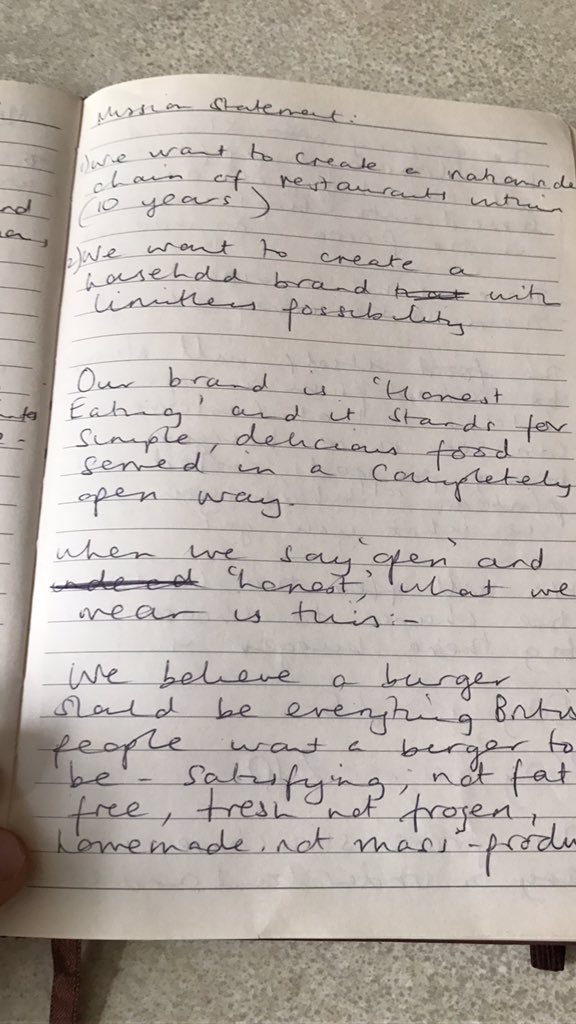 Mission Statement:
1) We want to create a nationwide
chain of restaurants within
(10 years)
2) We want to create a
household brand that with
limitless possibility
Our brand is 'Honest
Eating' and it stands for
simple, delicious food
served in a completely
open way.
When we say 'open' and
'honest', what we
mean is this:-
We believe a burger
should be everything Britis
people want a berger to
be - satisfying, not fat
free, fresh not frozen,
homemade, not mass-produ
nd